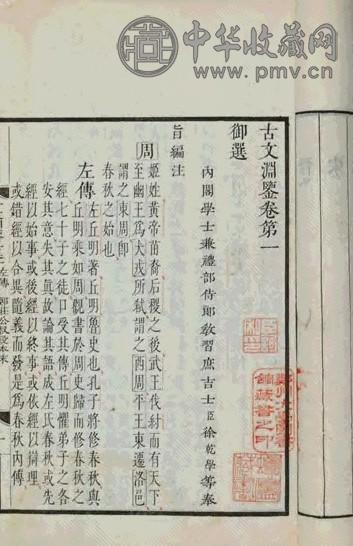 中华收藏网
www.pmv.cn
古文淵鑒卷第一
御選
內閣學士兼禮部侍郎教習庶吉士臣徐乾學等奉
旨編注
周 姬姓黃帝苗裔后稷之後武王伐紂而有天下
至幽王為犬戎所弒謂之西周平王東遷洛邑
謂之東周即
春秋之始也
左傳 左丘明著丘明魯史也孔子將修春秋與
丘明乘如周觀書於周史歸而修春秋之
經七十子之徒口受其傳丘明懼弟子之各
安其意失其真故論其語成左氏春秋或先
經以始事或後經以終事或依經以辯理
或錯經以合異隨義而發是為春秋內傳